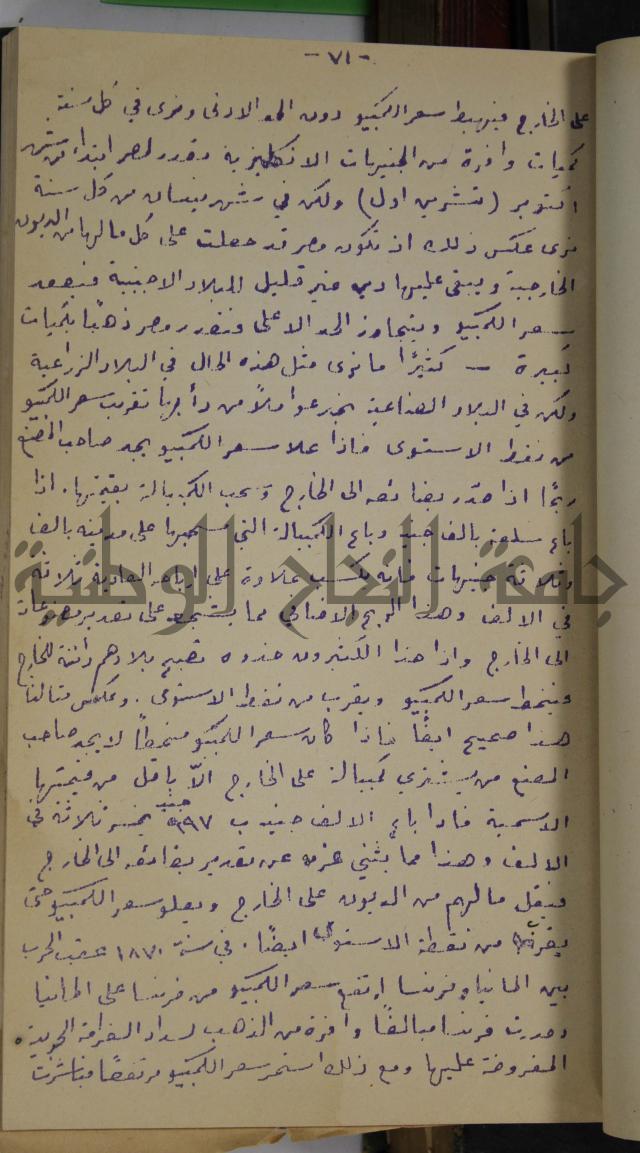 - ٧١ -
على الخارج فيهبط سعر الكمبيو دون الحد الادنى ونرى في كل سنة
كميات وافرة من الجنيهات الانكليزية تصدر لمصر ابتداء من شهر
اكتوبر (تشرين اول) ولكن في شهر نيسان من كل سنة
نرى عكس ذلك اذ تكون مصر قد حصلت على كل مالها من الديون
الخارجية ويبقى عليها دين غير قليل للبلاد الاجنبية فيصعد
سعر الكمبيو ويتجاوز الحد الاعلى فتصدر مصر ذهبًا بكميات
كبيرة — كثيرًا ما نرى مثل هذه الحال في البلاد الزراعية
ولكن في البلاد الصناعية نجد عواملاً من دأبها تقريب سعر الكمبيو
من نقطة الاستوى فاذا علا سعر الكمبيو يجد صاحب المصنع
ربحًا اذا صدّر بضائعه الى الخارج وسحب الكمبيالة بقيمتها. اذا
باع سلعة بالف جنيه وباع الكمبيالة التي سحبها على مدينه بالف
وثلاثة جنيهات فانه يكسب علاوة على ارباحه العادية ثلاثة
في الالف وهذا الربح الاضافي مما يشجعه على تصدير مصنوعاته
الى الخارج واذا حذا الكثيرون حذوه تصبح بلادهم دائنة للخارج
فينحط سعر الكمبيو ويقرب من نقطة الاستوى. وعكس مثالنا
هذا صحيح ايضًا فاذا كان سعر الكمبيو منحطاً لا يجد صاحب
المصنع من يشتري كمبيالة على الخارج الاّ باقل من قيمتها
الاسمية فاذا باع الالف جنيه ب ٩٩٧ جنيه يخسر ثلاثة في
الالف وهذا مما يثني عزمه عن تصدير بضائعه الى الخارج
فيقل مالهم من الديون على الخارج ويعلو سعر الكمبيو حتى
يقرب من نقطة الاستوى ايضًا. في سنة ١٨٧٠ عقب الحرب
بين المانيا وفرنسا ارتفع سعر الكمبيو من فرنسا على المانيا
وصدرت فرنسا مبالغًا وافرة من الذهب لسداد الغرامة الحربية
المفروضة عليها ومع ذلك استمر سعر الكمبيو مرتفعًا فباشرت
جامعة النجاح الوطنية